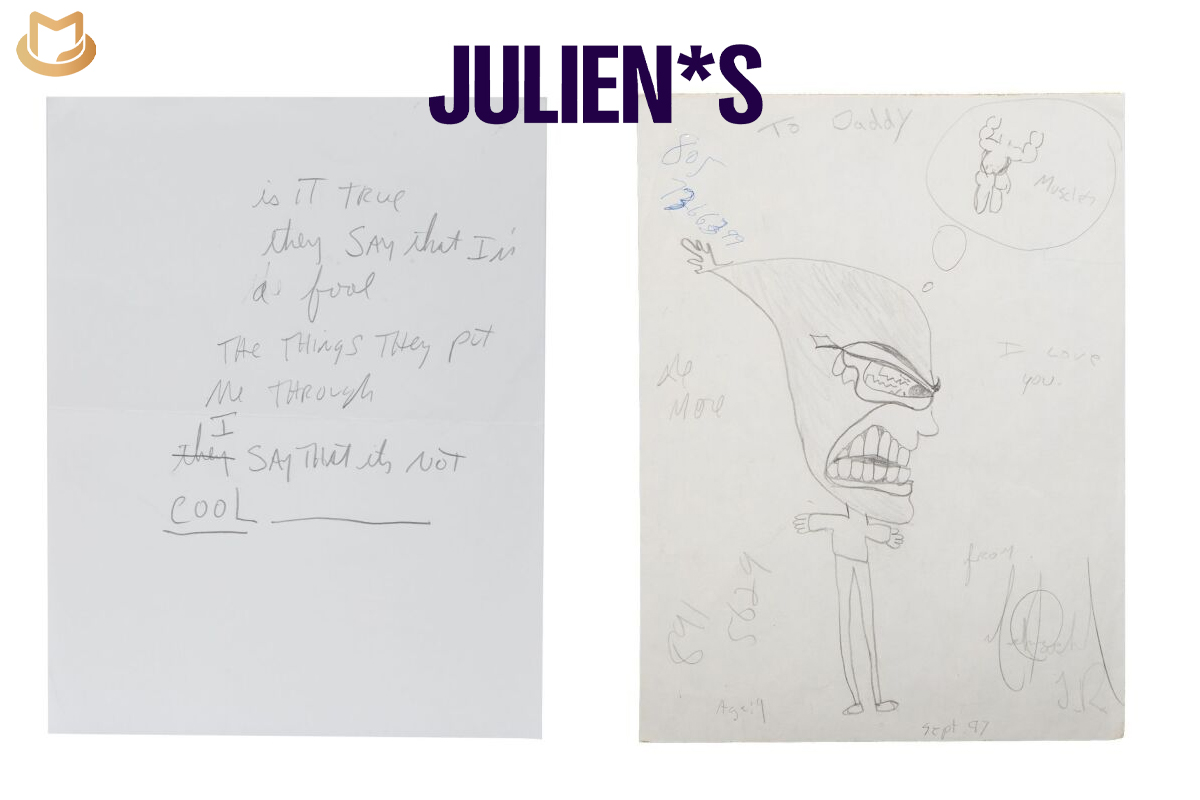 JULIEN*S
is IT TRUE
they SAY that I is
a fool
THE THINGS THEY put
Me THROUGH
I
they SAY THAT its NOT
COOL
To Daddy
805
Muscles
I Love
you.
do
More
from
J.R.
Age:4
Sept 97